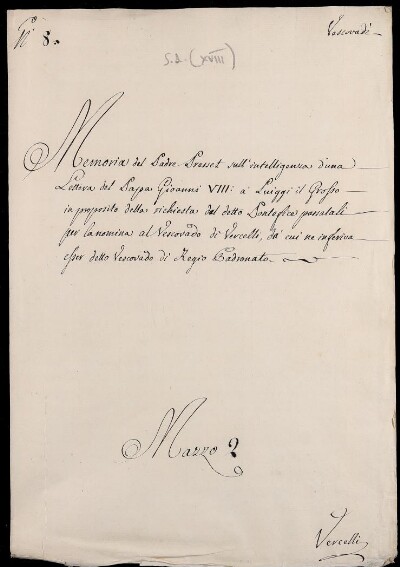 N.° 8.
Vescovadi
S.d. (XVIII)
Memoria del Padre Presset sull'intelligenza d'una
Lettera del Pappa Giovanni VIII: a' Luiggi il Grosso
in proposito della richiesta dal detto Pontefice passatali
per la nomina al Vescovado di Vercelli, da' cui ne inferiva
esser detto Vescovado di Regio Padronato
Mazzo 2
Vercelli